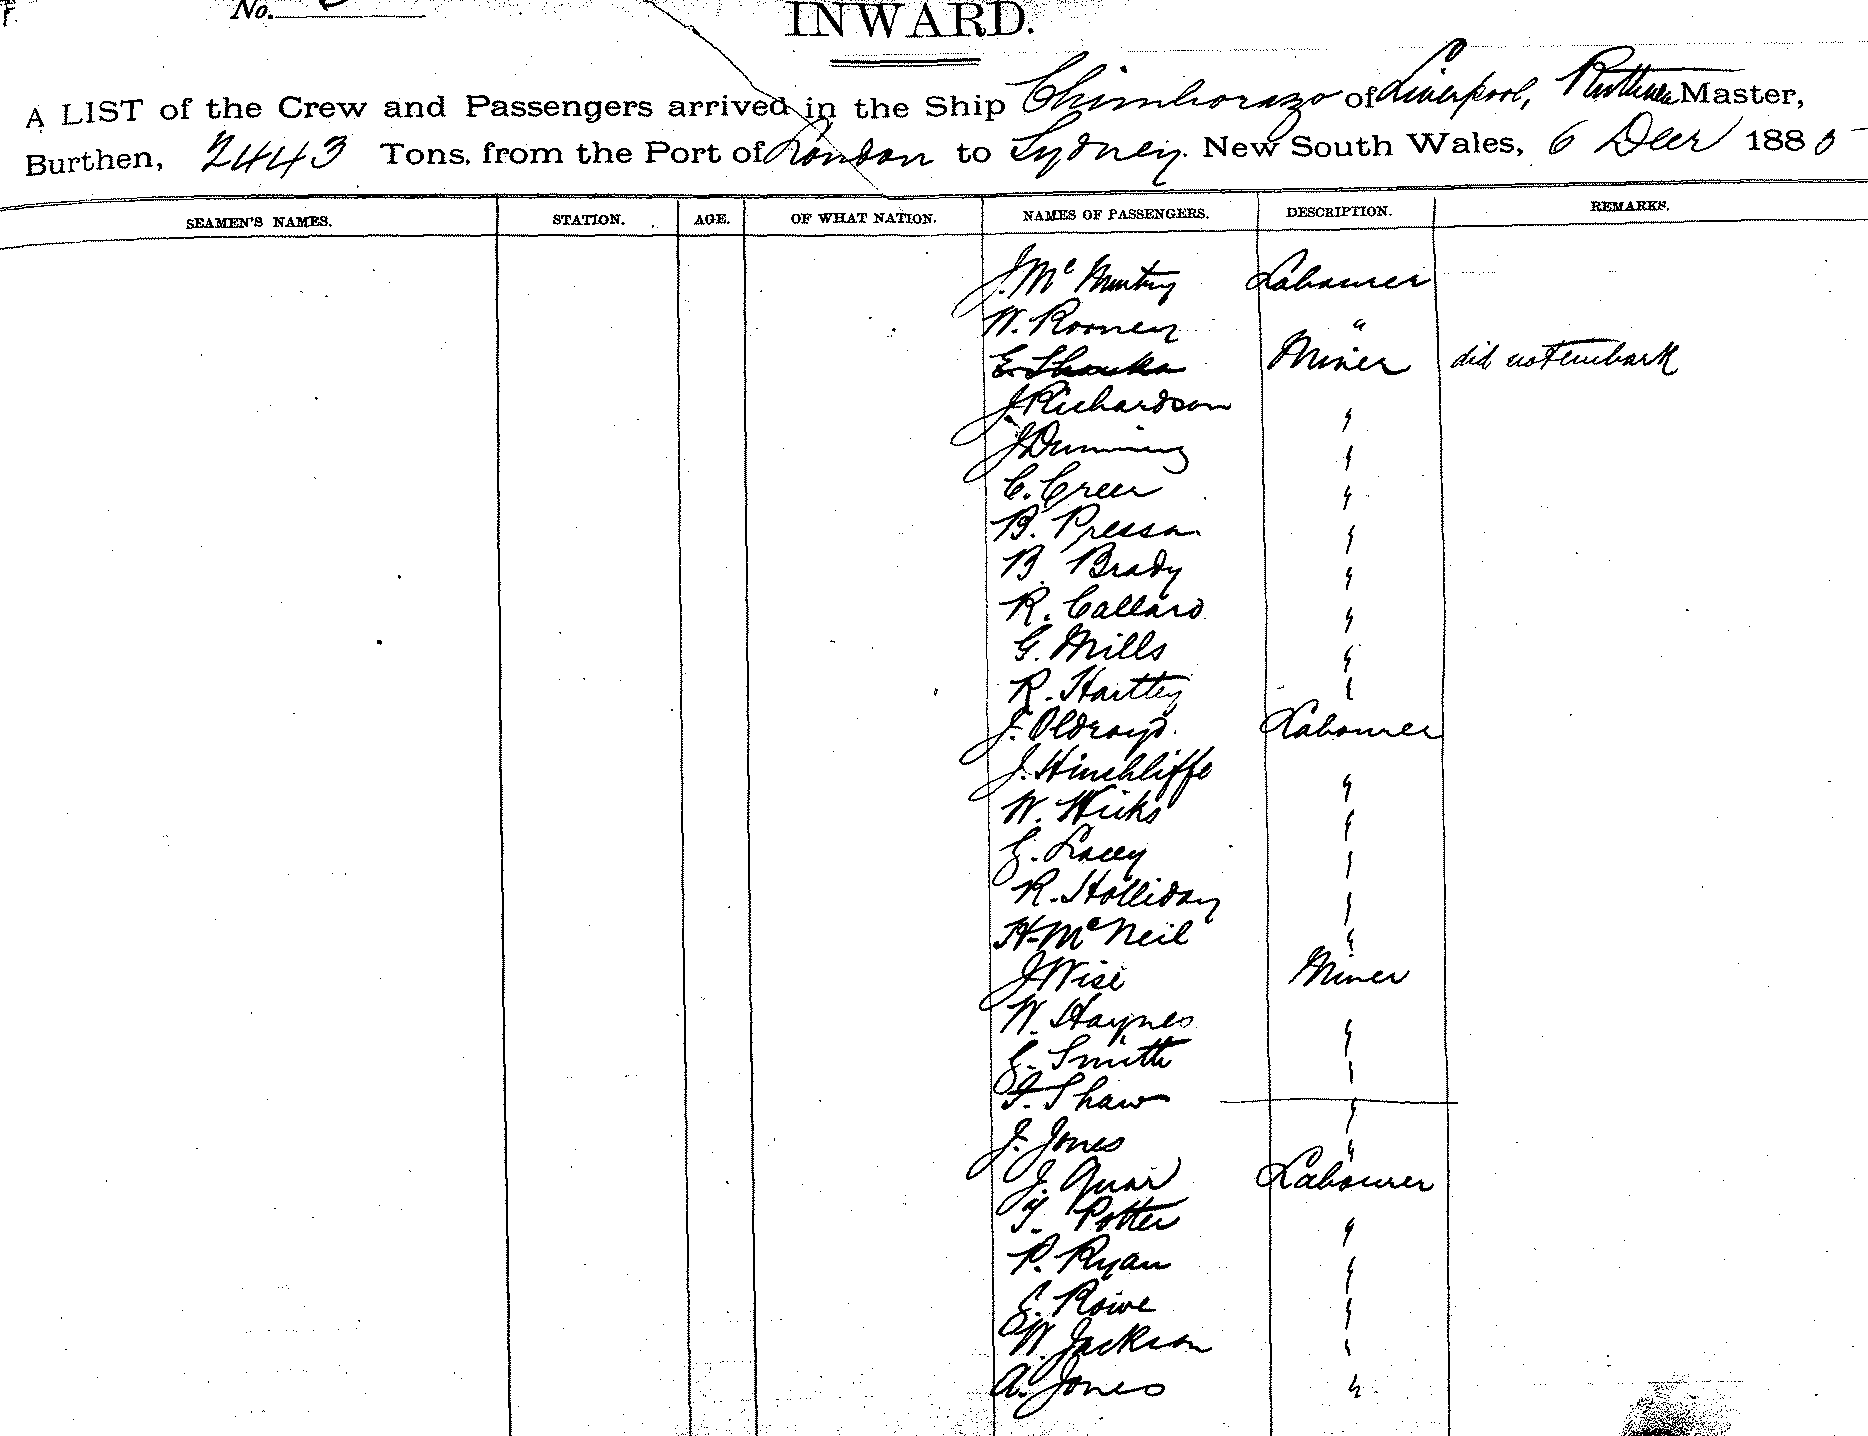 No.
INWARD.
A LIST of the Crew and Passengers arrived in the Ship Chimborazo of Liverpool, Master,
Burthen, 2443 Tons, from the Port of London to Sydney. New South Wales, 6 Decr 1880
SEAMEN'S NAMES. STATION. AGE. OF WHAT NATION. NAMES OF PASSENGERS. DESCRIPTION. REMARKS.
J. Mc Murtry Labourer
W. Rooney "
E. Miner did not embark
J. Richardson "
J. Dunning "
C. Greer "
B. Pressa "
B. Brady "
R. Callard "
G. Mills "
R. Hartley "
J. Oldroyd. Labourer
J. Hinchliffe "
W. Hicks "
G. Lacey "
R. Holliday "
H. Mc Neil "
J. Wise Miner
W. Haynes "
G. Smith "
F. Shaw "
J. Jones "
J. Quar Labourer
T. Potter "
P. Ryan "
G. Rowe "
W. Jackson "
A. Jones "